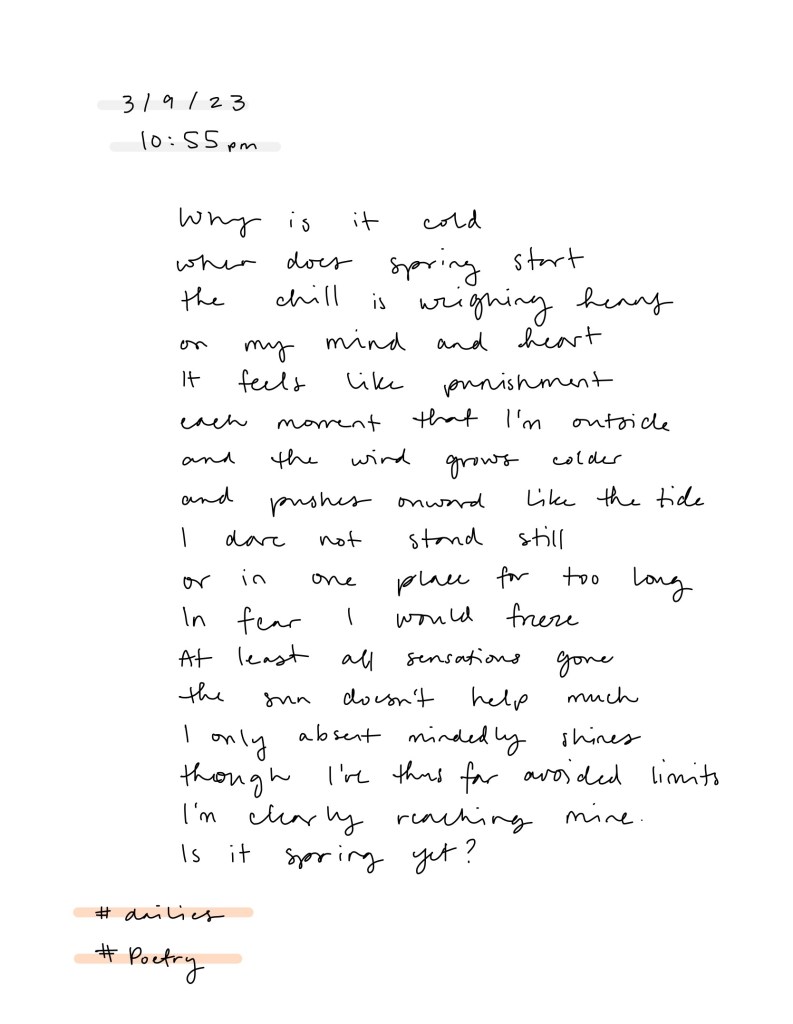 3/9/23
10:55pm
Why is it cold
when does spring start
the chill is weighing heavy
on my mind and heart
It feels like punnishment
each moment that I'm outside
and the wind grows colder
and pushes onward like the tide
I dare not stand still
or in one place for too long
In fear I would freeze
At least all sensations gone
the sun doesn't help much
I only absent mindedly shines
though I've thus far avoided limits
I'm clearly reaching mine.
Is it spring yet?
# dailies
# Poetry